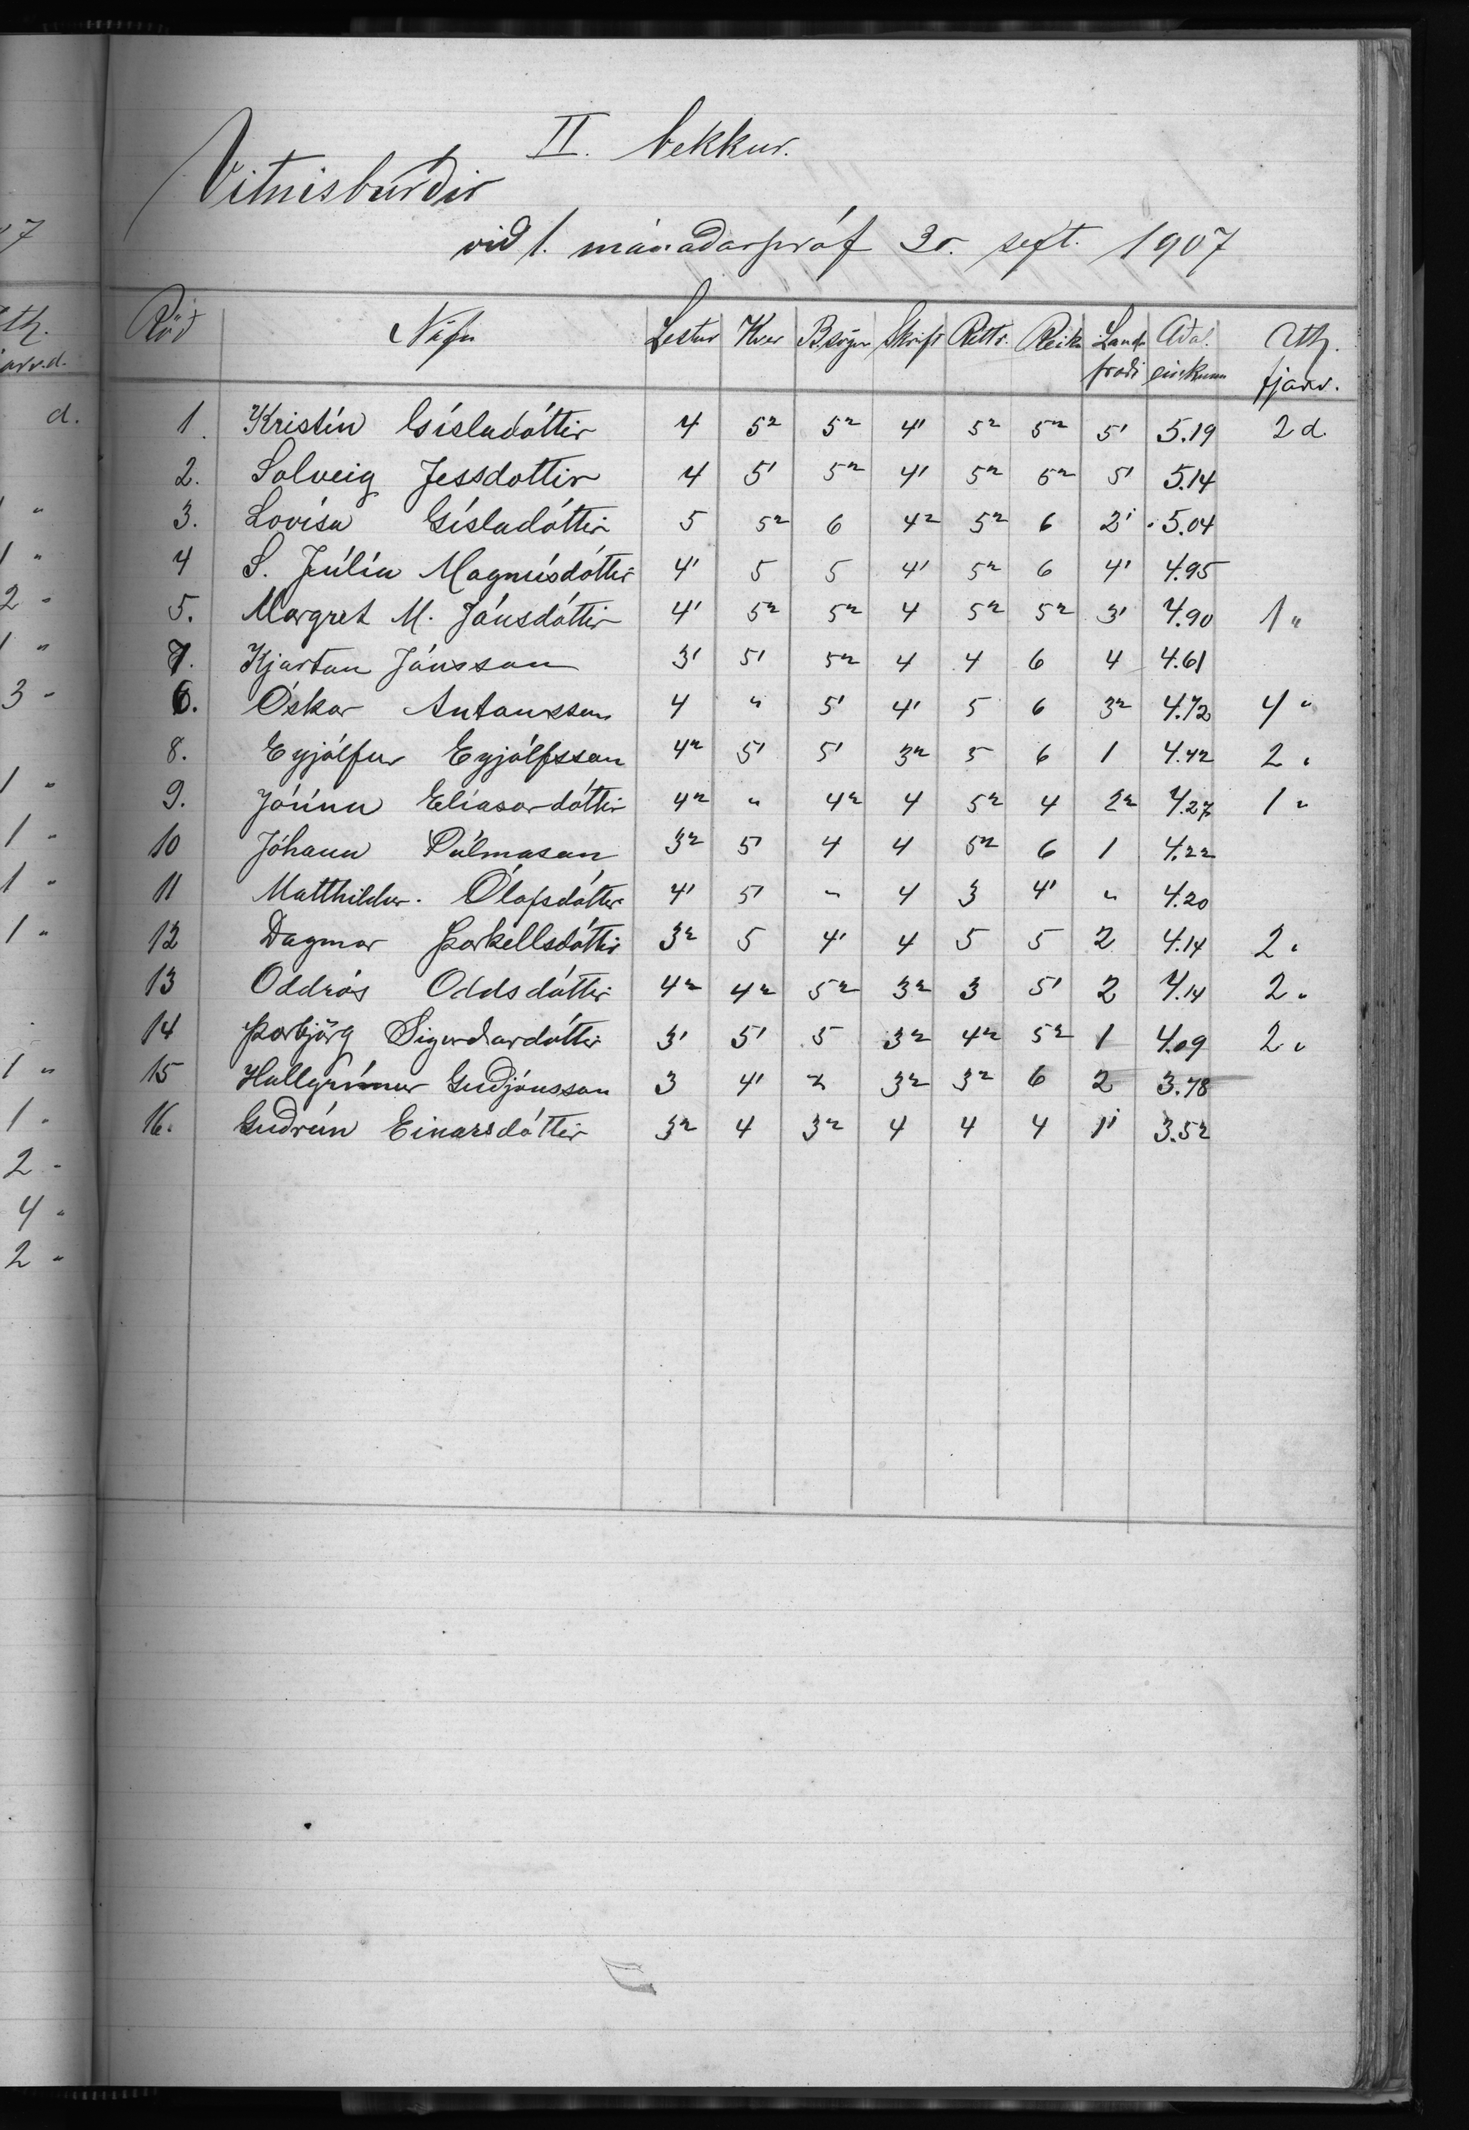 II. bekkur.
Vitnisburðir
við 1. mánaðarpróf 30. sept. 1907
Röð Nöfn Lestur Kver B.sögur Skrift Réttr. Reikn Landfræði Aðaleinkunn Ath. fjarv.
1. Kristín Gísladóttir 4 5² 5² 4¹ 5² 5² 5¹ 5.19 2 d.
2. Solveig Jessdottir 4 5¹ 5² 4¹ 5² 5² 5¹ 5.14
3. Lovísa Gísladóttir 5 5² 6 4² 5² 6 2¹ 5.04
4 S. Júlía Magnúsdóttir 4¹ 5 5 4¹ 5² 6 4¹ 4.95
5. Margret M. Jónsdóttir 4¹ 5² 5² 4 5² 5² 3¹ 4.90 1 "
7. Kjartan Jónsson 3¹ 5¹ 5² 4 4 6 4 4.61
6. Óskar Antonsson 4 " 5¹ 4¹ 5 6 3² 4.72 4 "
8. Eyjólfur Eyjólfsson 4² 5¹ 5¹ 3² 5 6 1 4.42 2 "
9. Jónína Elíasardóttir 4² " 4² 4 5² 4 2² 4.27 1 "
10 Jóhann Pálmason 3² 5¹ 4 4 5² 6 1 4.22
11 Matthildur Ólafsdóttir 4¹ 5¹ " 4 3 4¹ " 4.20
12 Dagmar Þorkellsdóttir 3² 5 4¹ 4 5 5 2 4.14 2 "
13 Oddrós Oddsdóttir 4² 4² 5² 3² 3 5¹ 2 4.14 2 "
14 Þorbjörg Sigurðardóttir 3¹ 5¹ 5 3² 4² 5² 1 4.09 2 "
15 Hallgrímur Guðjónsson 3 4¹ 3² 3² 6 2 3.78
16. Guðrún Einarsdóttir 3² 4 3² 4 4 4 1¹ 3.52